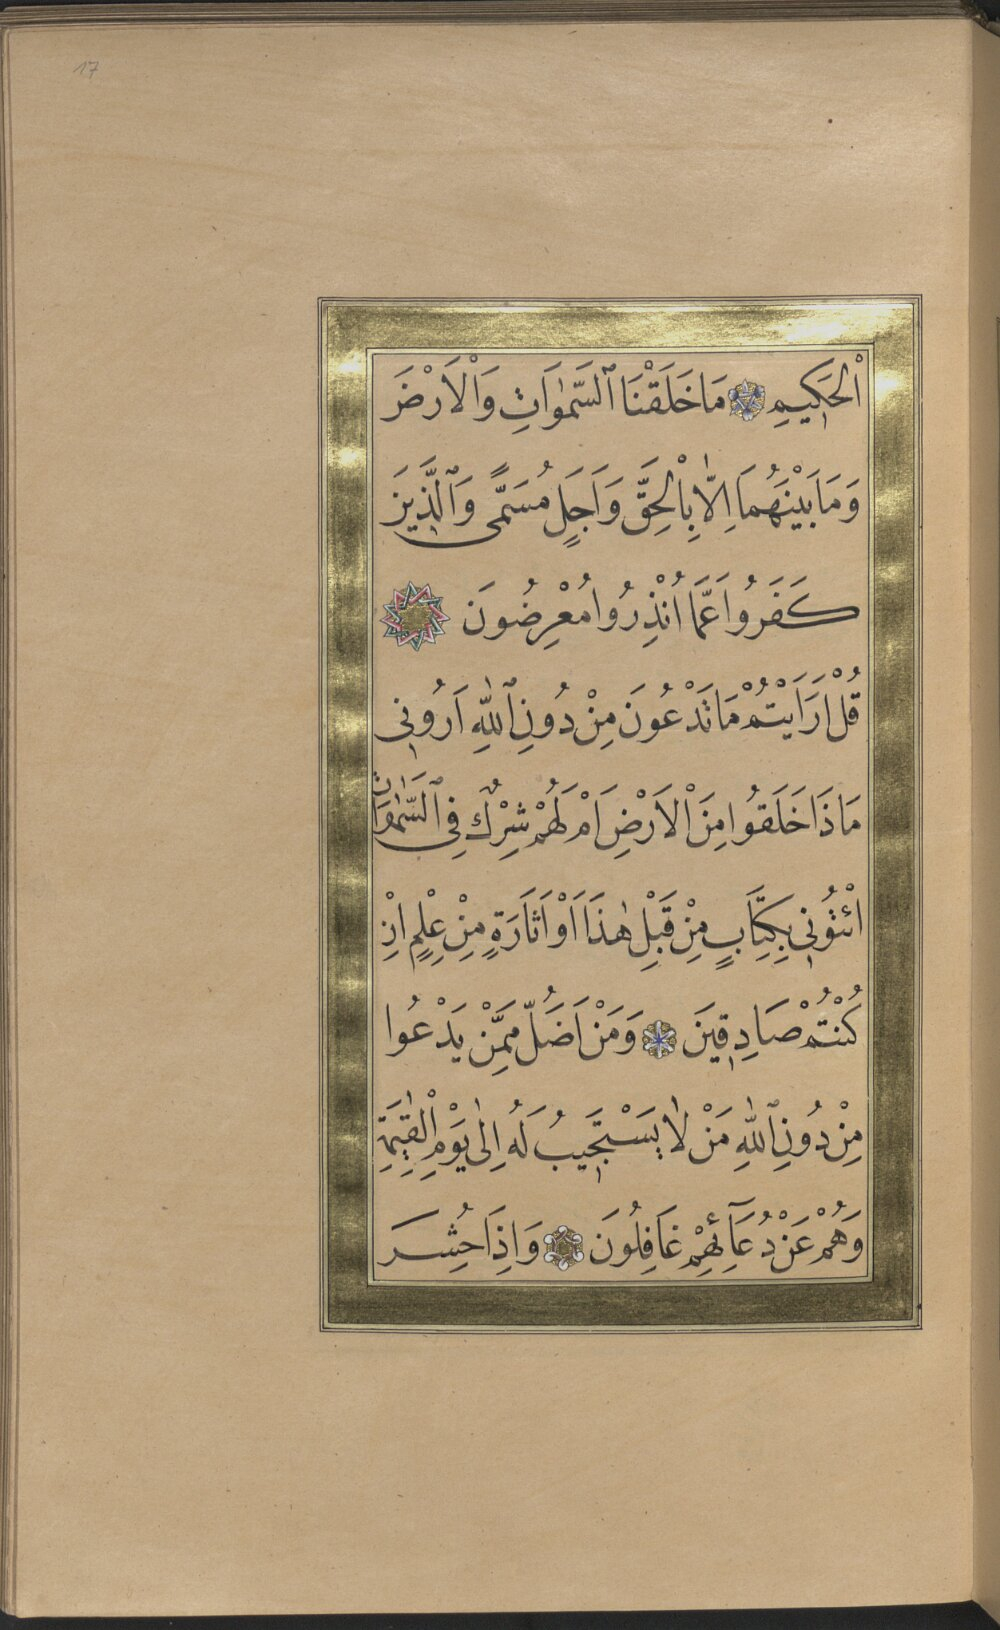 17
اْلحَكِيمِ مَا خَلَقْنَا ٱلسَّمٰوَاتِ وَاْلاَرْضَ
وَمَا بَيْنَهُمَا اِلاَّ بِاْلحَقِّ وَاَجَلٍ مُسَمًّى وَٱلَّذِينَ
كَفَرُوا عَمَّا اُنْذِرُوا مُعْرِضُونَ
قُلْ اَرَاَيْتُمْ مَا تَدْعُونَ مِنْ دُونِ ٱللّٰهِ اَرُونِى
مَاذَا خَلَقُوا مِنَ اْلاَرْضِ اَمْ لَهُمْ شِرْكٌ فِى ٱلسَّمٰوَاتِ
ائْتُونِى بِكِتَابٍ مِنْ قَبْلِ هٰذَا اَوْ اَثَارَةٍ مِنْ عِلْمٍ اِنْ
كُنْتُمْ صَادِقِينَ وَمَنْ اَضَلُّ مِمَّنْ يَدْعُوا
مِنْ دُونِ ٱللّٰهِ مَنْ لاَ يَسْتَجِيبُ لَهُ اِلٰى يَوْمِ اْلقِيٰمَةِ
وَهُمْ عَنْ دُعَآئِهِمْ غَافِلُونَ وَاِذَا حُشِرَ